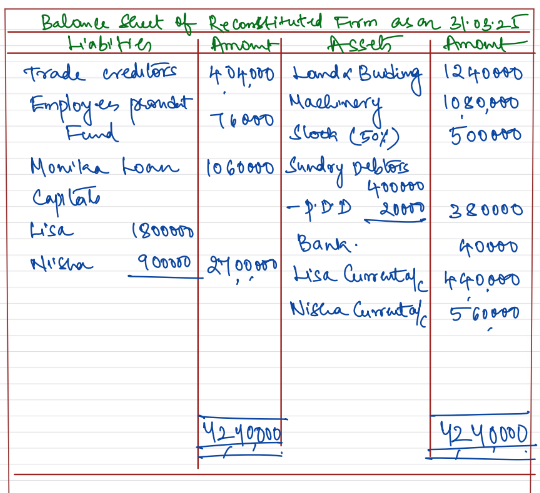 Balance Sheet of Reconstituted Firm as on 31.03.25
Liabilities Amount Assets Amount
Trade creditors 404,000 Land & Building 1240000
Employees provident Fund 76000 Machinery 1080,000
Stock (50%) 500000
Monika Loan 1060000 Sundry Debtors
400000
Capitals - P.D.D 20000 380000
Lisa 1800000
Bank. 40000
Nisha 900000 2700000 Lisa Current a/c 440,000
Nisha Current a/c 560000
4240000 4240000